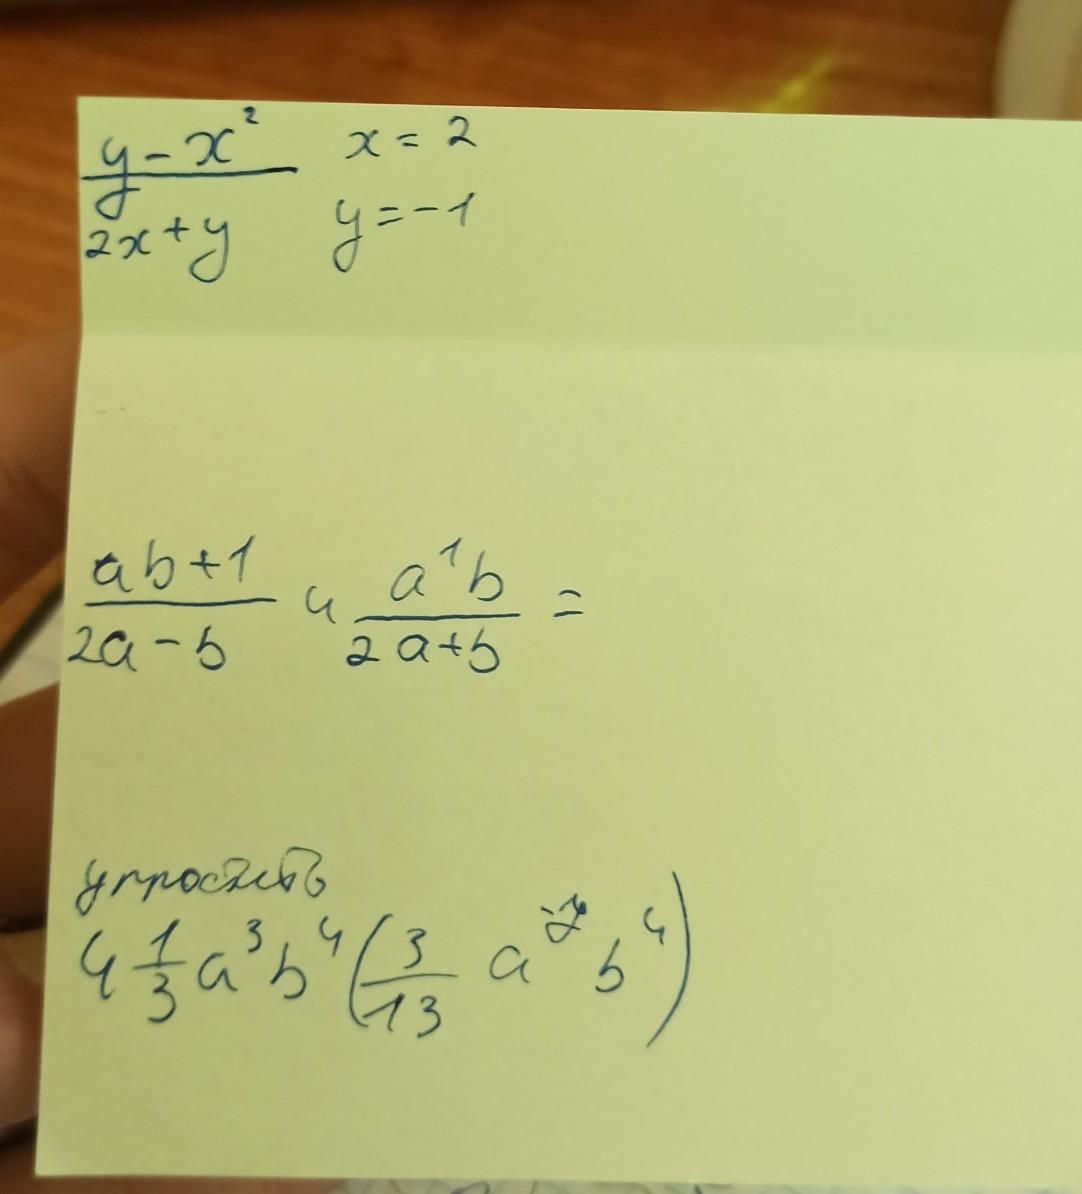 y - x² x = 2
2x + y y = -1
ab+1 и a¹b =
2a - b 2a+b
упростить
4 1/3 a³b⁴ (3/13 a b⁴)